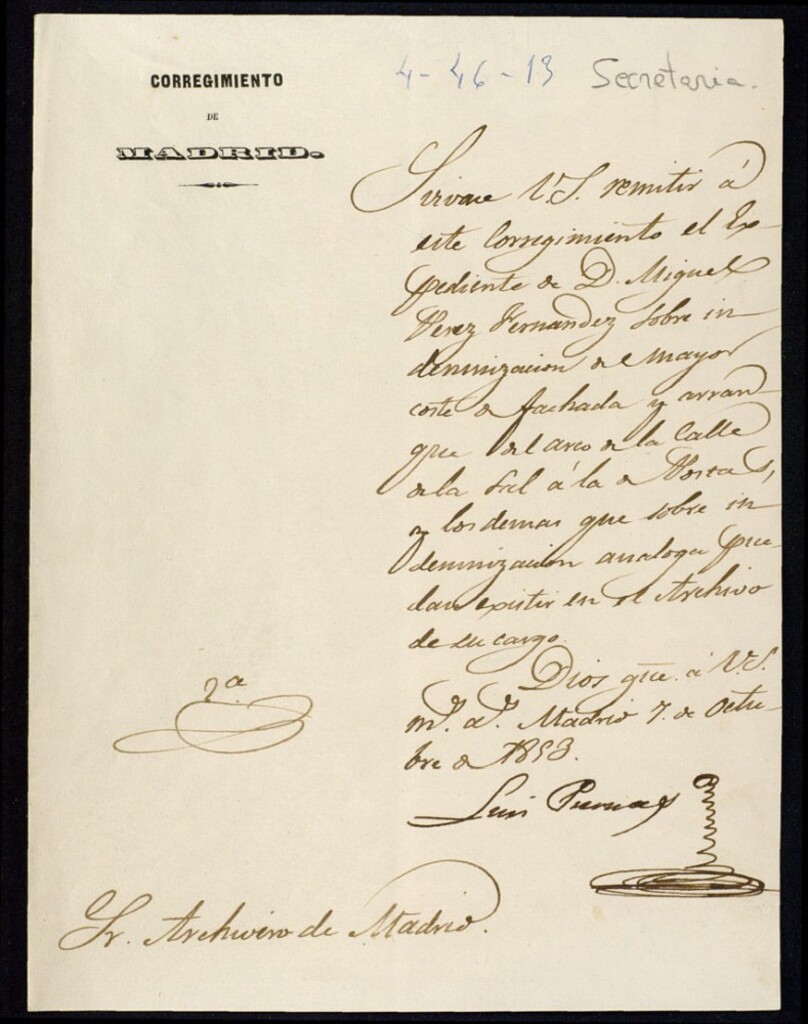 CORREGIMIENTO
DE
MADRID.
4-46-13 Secretaria.
Sirvase V.S. remitir á
este Corregimiento el Ex-
pediente de D. Miguel
Perez Fernandez sobre in-
demnizacion del mayor
coste de fachada y arran-
que del arco de la Calle
de la Sal á la de Postas,
y los demas que sobre in-
demnizacion analoga pue-
dan existir en el Archivo
de su cargo.
Dios gue. á V.S.
ms. as. Madrid 7. de Octu-
bre de 1853.
2a
Luis
Sr. Archivero de Madrid.